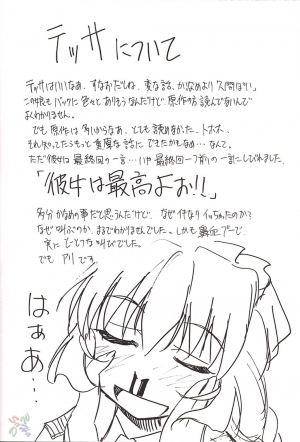 テッサについて
テッサはいいなあ、すなおだしね、変な話、かなめより人間ぽい。
この娘もバックに色々とありそうなんだけど、原作の方読んでないんで
よくわかりません。
でも原作は多いからなあ、とても読めなかった、トホホ。
それ知ってたらもっと重厚な話にできたかもなあ…なんて。
ただ彼女は最終回の一言…いや最終回一つ前の一言にしびれました。
「彼女は最高よお!!」
多分かなめの事だと思うんだけど、なぜ作なりイッちゃったのか?
なぜ叫ぶのか、までわかりませんでした。しかも鼻血ブーで、
実にひとりな叫びでした。
でも アリ です。
はぁあ・・・